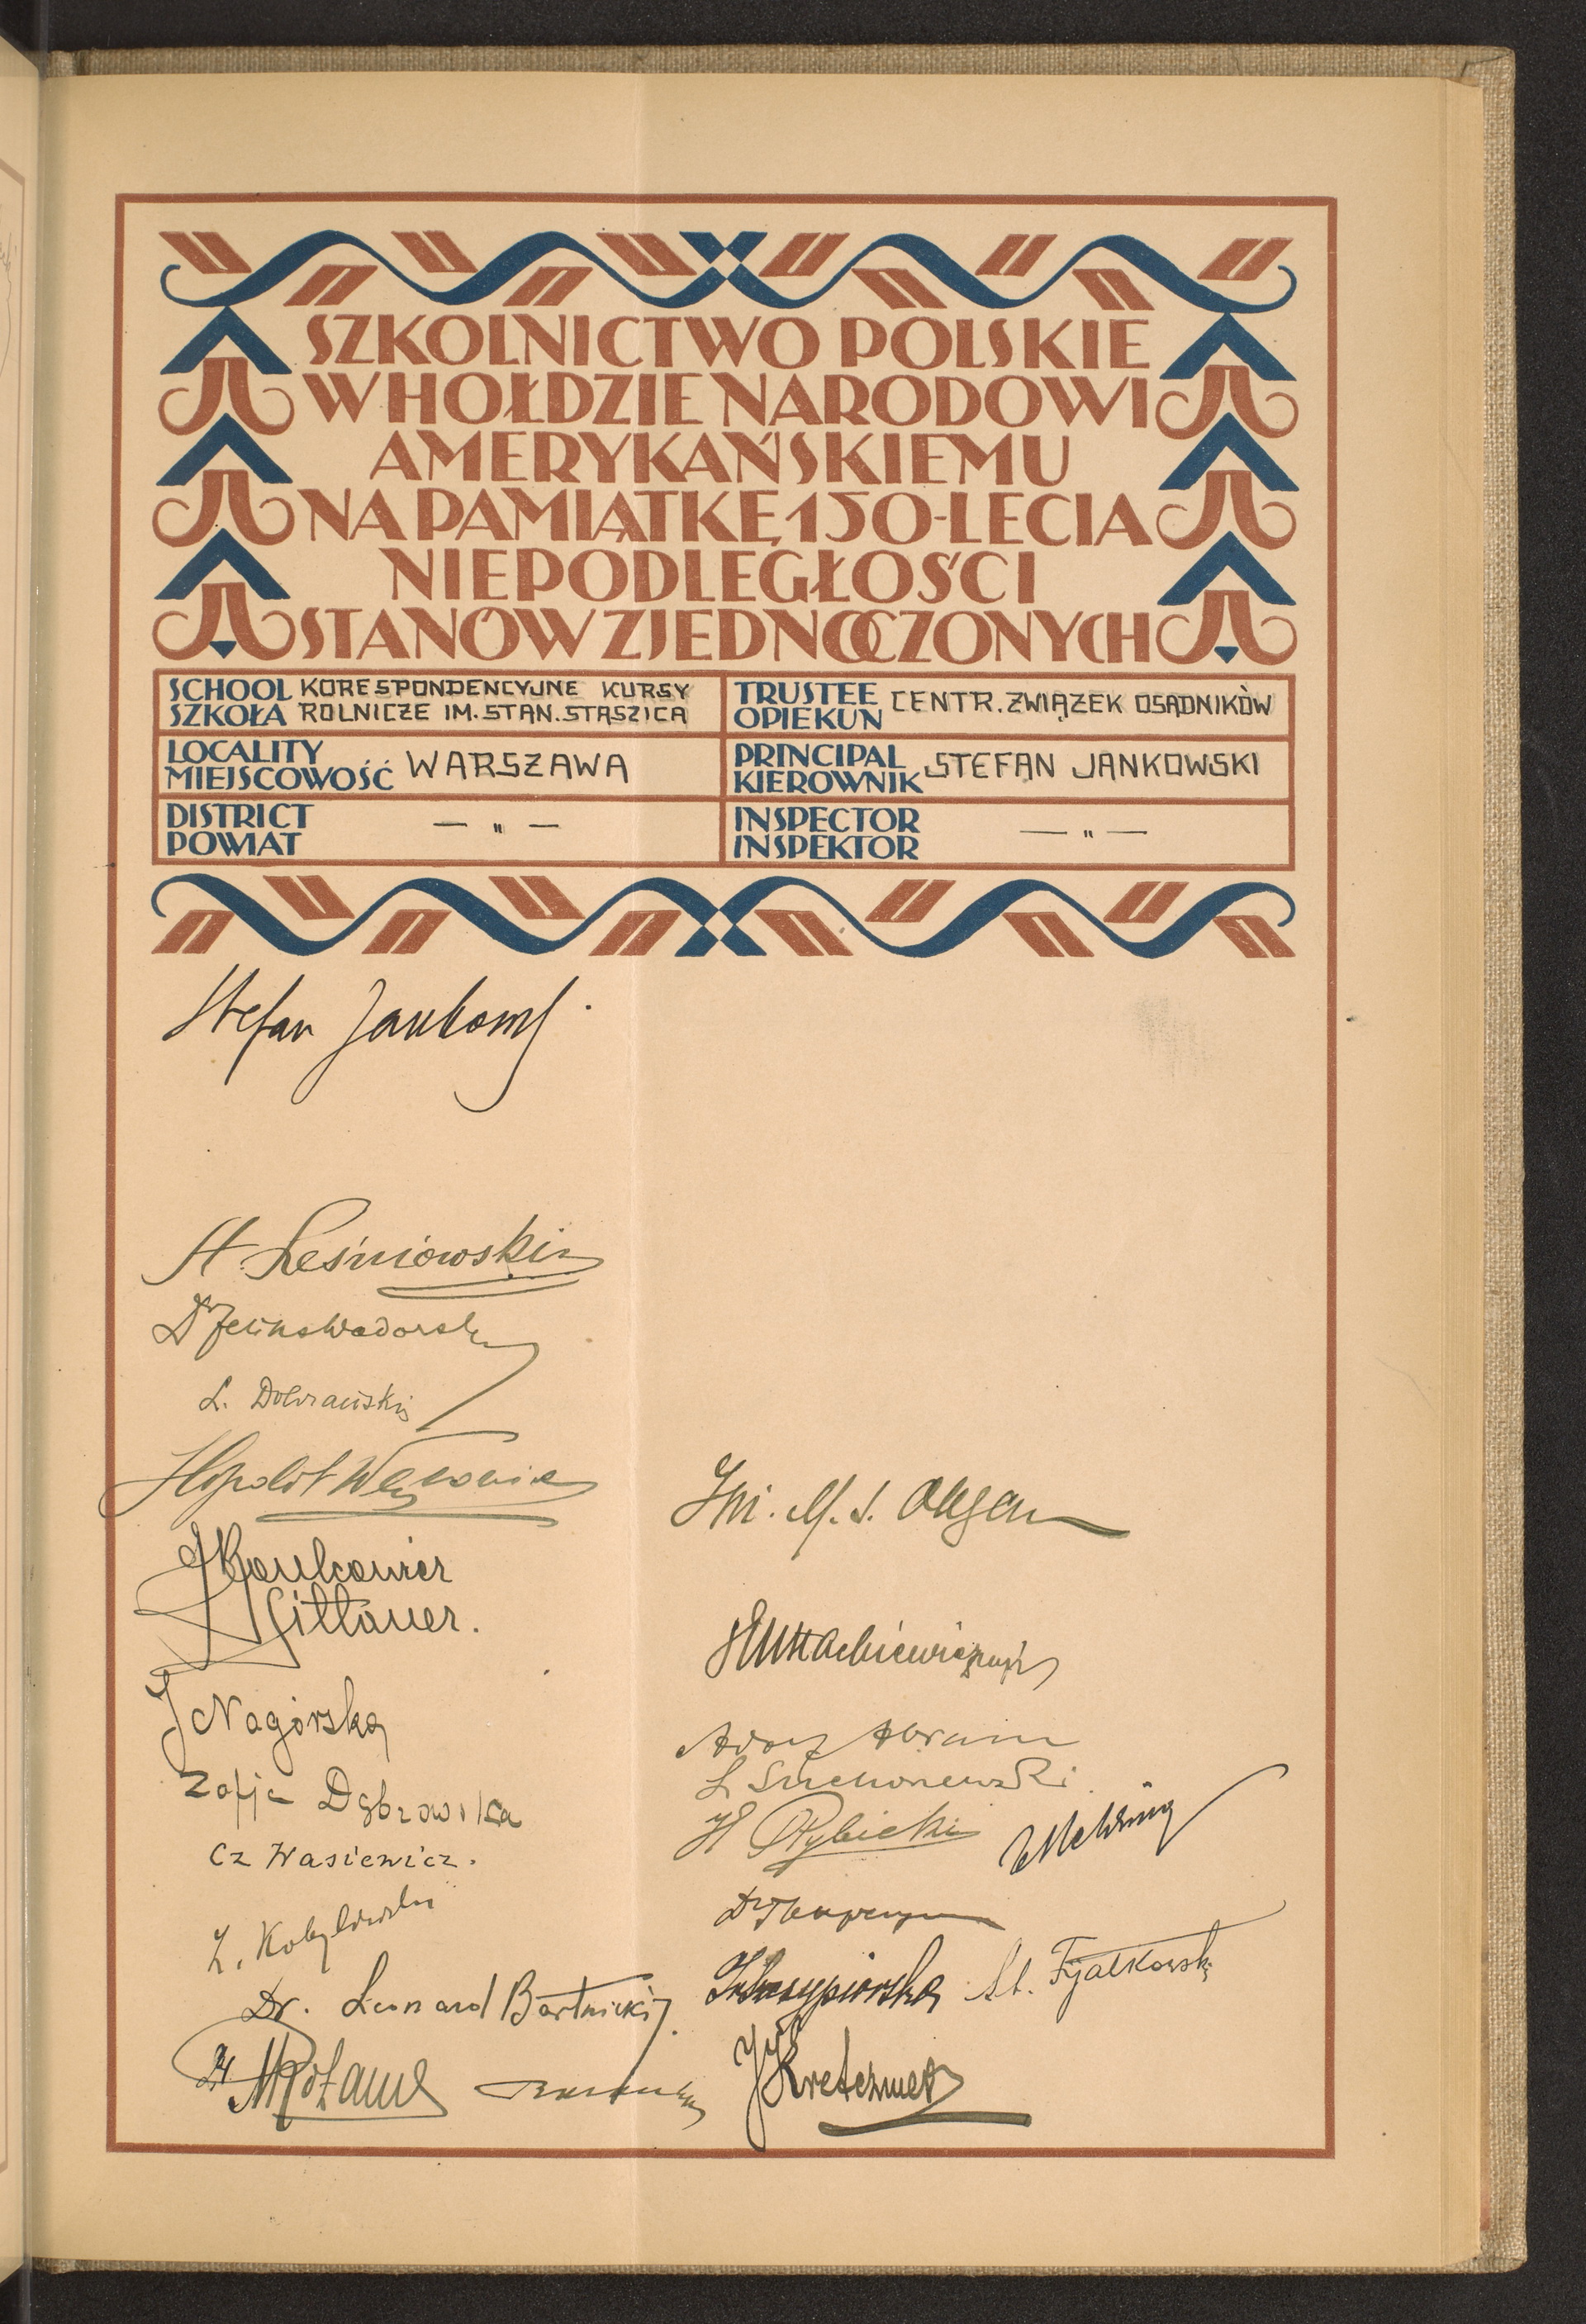 SZKOLNICTWO POLSKIE
W HOŁDZIE NARODOWI
AMERYKAŃSKIEMU
NA PAMIĄTKĘ 150-LECIA
NIEPODLEGŁOŚCI
STANÓW ZJEDNOCZONYCH
SCHOOL KORESPONDENCYJNE KURSY
SZKOŁA ROLNICZE IM. STAN. STASZICA
TRUSTEE
OPIEKUN CENTR. ZWIĄZEK OSADNIKÓW
LOCALITY
MIEJSCOWOŚĆ WARSZAWA
PRINCIPAL
KIEROWNIK STEFAN JANKOWSKI
DISTRICT
POWIAT — " —
INSPECTOR
INSPEKTOR — " —
Stefan Jankowski
St. Leśniowski
Dr
L. Dobrzański
Hipolit
Gittauer.
J Nagórska
Zofja Dąbrowska
Cz Wasiewicz.
Z. Kobyłowski
Dr. Leonard Bartnicki
Inż. M. S. Okęcki
Adolf Abram
H Rybicki
Dr
St. Fijałkowski
J Kretczmer